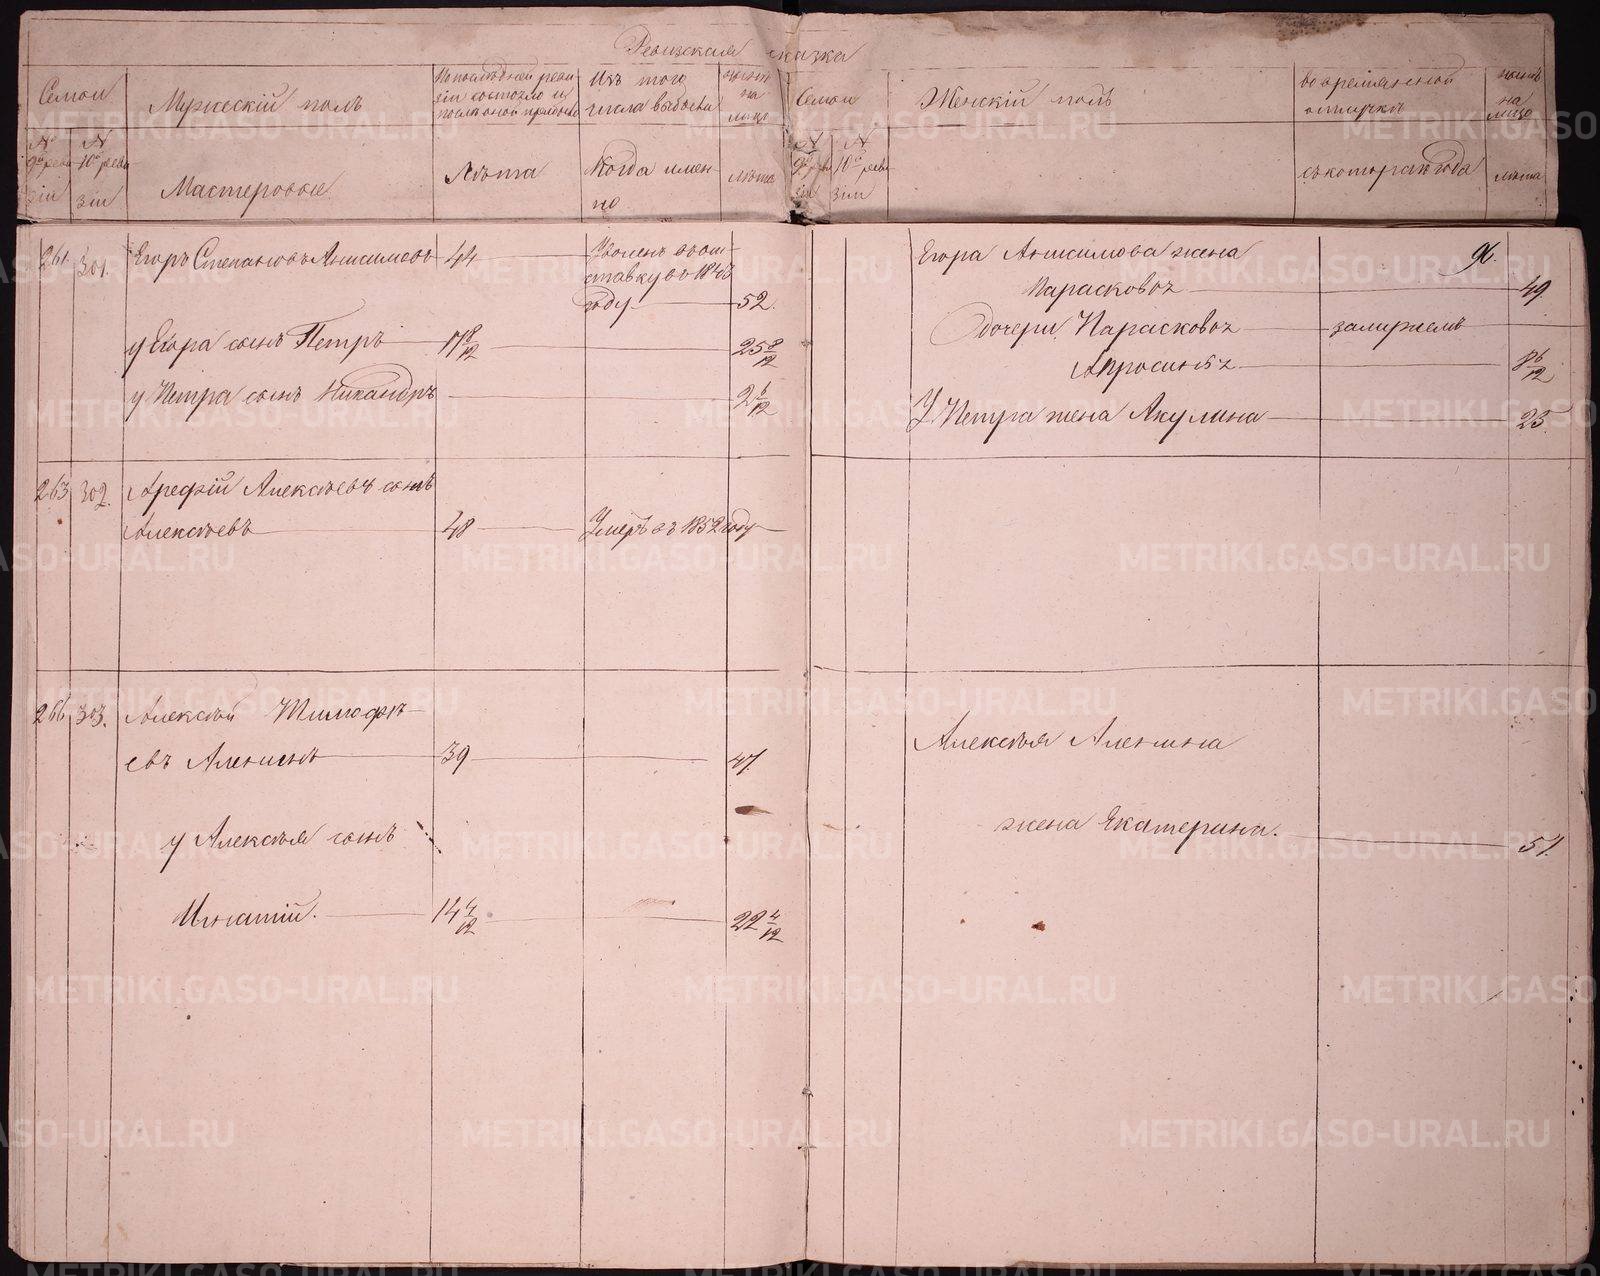 Ревизская сказка
Семьи
Мужескій полъ
По последней ревизіи состояло и
Изъ того числа выбыло
ныне на лицо
Семьи
Женскій полъ
во временной отлучкѣ
ныне на лицо
№ 9й ревизіи
№ 10й ревизіи
Мастеровые
Лѣта
Когда именно
лѣта
№ 9й ревизіи
№ 10й ревизіи
съ котораго года
лѣта
96.
261. 301. Егоръ Степановъ Анисимовъ 44 Уволенъ въ отставку въ 1843 году 52.
у Егора сынъ Петръ 17 8/12 25 8/12
у Петра сынъ Никандръ 2 6/12
Егора Анисимова жена
Парасковья 49.
Дочери, Парасковья замужемъ
Апросинья 8 6/12
У Петра жена Акулина 25.
263. 302. Арефій Алексѣевъ сынъ
Алексѣевъ 48 Умеръ въ 1852 году
266. 303. Алексѣй Тимофѣ-
евъ Аленинъ 39 47.
у Алексѣя сынъ
Игнатій. 14 4/12 22 4/12
Алексѣя Аленина
жена Екатерина. 51.
METRIKI.GASO-URAL.RU